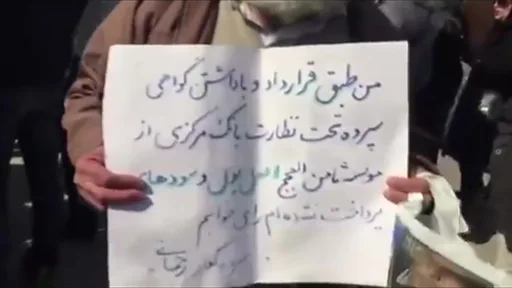 من طبق قرارداد و با داشتن گواهی
سپرده تحت نظارت بانک مرکزی از
موسسه ثامن الحجج اصل پول و سودهای
پرداخت نشده ام را می خواهم